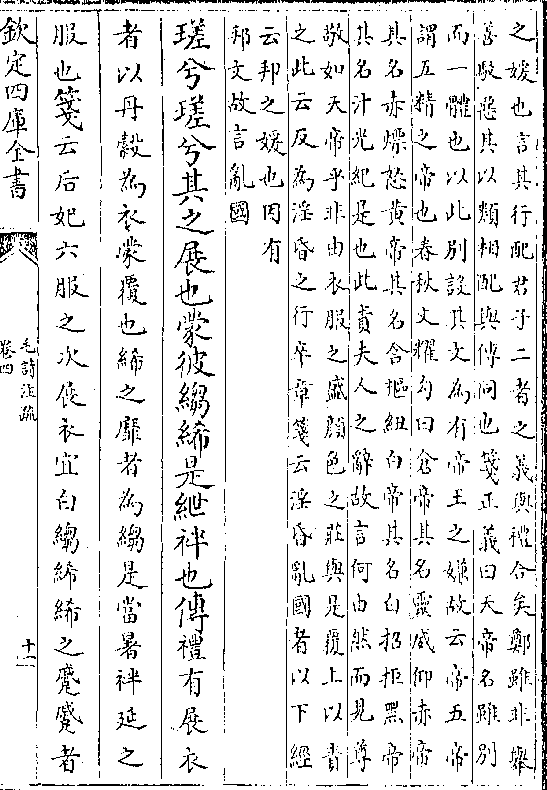 之媛也言其行配君子二者之義與禮合矣鄭雖非舉
善駮惡其以類相配與傳同也箋正義曰天帝名雖別
而一體也以此別設其文為有帝王之嫌故云帝五帝
謂五精之帝也春秋文耀勾曰倉帝其名靈威仰赤帝
其名赤熛怒黃帝其名含樞紐白帝其名白招拒黑帝
其名汁光紀是也此責夫人之辭故言何由然而見尊
敬如天帝乎非由衣服之盛顔色之莊與是覆上以責
之此云反為淫昏之行卒章箋云淫昏亂國者以下經
云邦之媛也因有
邦文故言亂國
瑳兮瑳兮其之展也蒙彼縐絺是紲袢也傳禮有展衣
者以丹縠為衣蒙覆也絺之靡者為縐是當暑袢延之
服也箋云后妃六服之次展衣宜白縐絺絺之蹙蹙者
欽定四庫全書
毛詩注疏
卷四
十一